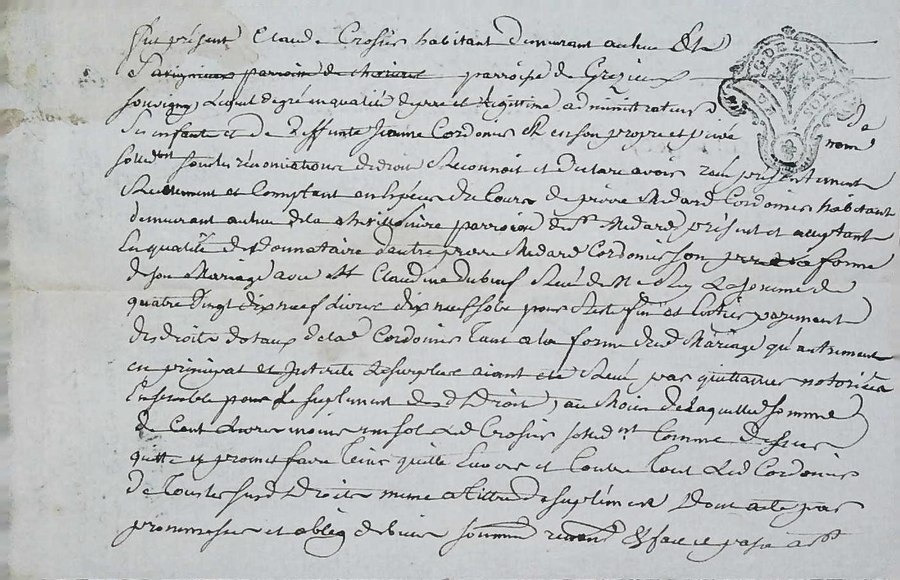 fut présent Claude Crosier habitant demeurant au lieu de la
parroisse de Grezieu
souvigny lequel de gré en qualité de pere et legittime administrateur de
ses enfants et de deffunte Jeanne Cordonier et en son propre et privé nom
solidt sous les renonciations de droit Reconnoit et declare avoir reçu presentement
Reellement et Comptant en Especes du Cours de pierre Medard Cordonier habitant
demeurant au lieu de la parroisse de St Medard present et acceptant
En qualité de Donnataire d'autre pierre Medard Cordonier son pere a forme
de son Mariage avec Claudine dubœuf Reçu de Me la somme de
quatre vingt dix neuf Livres dix neuf sols pour Reste fin et Entier payement
des droits dotaux de lad Cordonier tant a la forme de sond Mariage qu'autrement
en principal et Interets le surplus aiant été Reçu par quittances notoriées
Ensemble pour le suplement de sd Droits, au Moien de laquelle somme
de Cent Livres moins un sol Led Crosier solidt Comme dessus
quitte et promet faire tenir quitte Envers et Contre tout Led Cordonier
De tous les susd Droits meme a titre de suplément Dont acte par
promesses et oblig de biens soumn renonn & fait et passé a St
G. DE LYON